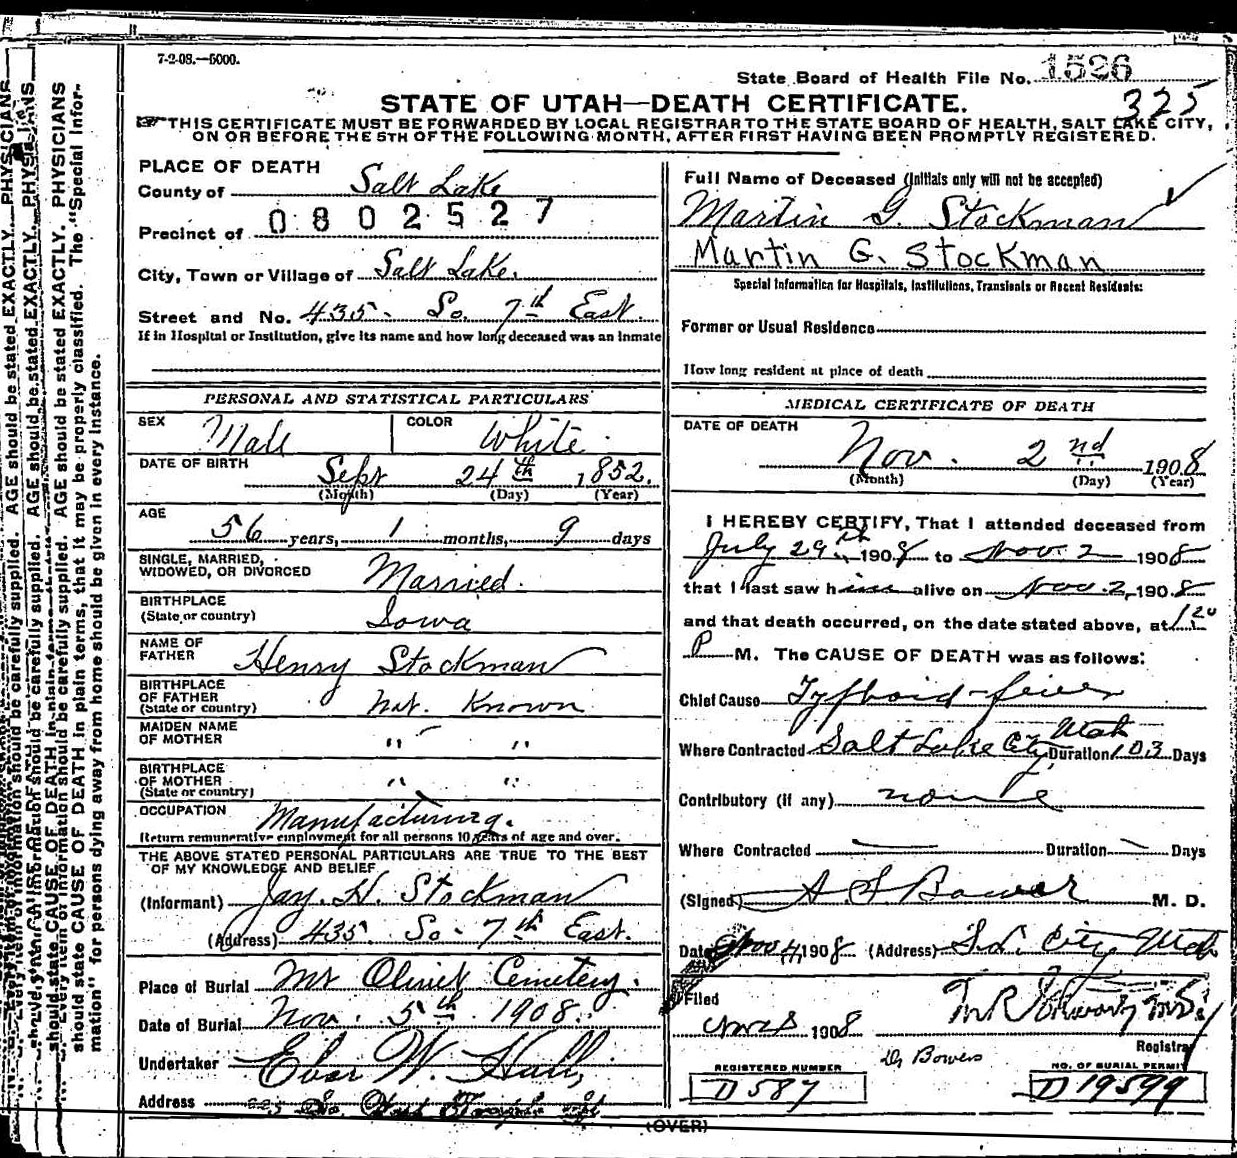 7-2-08.—5000.
State Board of Health File No. 1526
325
STATE OF UTAH—DEATH CERTIFICATE.
THIS CERTIFICATE MUST BE FORWARDED BY LOCAL REGISTRAR TO THE STATE BOARD OF HEALTH, SALT LAKE CITY,
ON OR BEFORE THE 5TH OF THE FOLLOWING MONTH, AFTER FIRST HAVING BEEN PROMPTLY REGISTERED.
PLACE OF DEATH
County of Salt Lake
Precinct of 0802527
City, Town or Village of Salt Lake.
Street and No. 435 So. 7th East.
If in Hospital or Institution, give its name and how long deceased was an inmate
PERSONAL AND STATISTICAL PARTICULARS
SEX Male COLOR White
DATE OF BIRTH Sept 24th 1852.
(Month) (Day) (Year)
AGE 56 years, 1 months, 9 days
SINGLE, MARRIED,
WIDOWED, OR DIVORCED Married.
BIRTHPLACE
(State or country) Iowa
NAME OF
FATHER Henry Stockman
BIRTHPLACE
OF FATHER
(State or country) Not Known
MAIDEN NAME
OF MOTHER " "
BIRTHPLACE
OF MOTHER
(State or country) " "
OCCUPATION Manufacturing.
Return remunerative employment for all persons 10 years of age and over.
THE ABOVE STATED PERSONAL PARTICULARS ARE TRUE TO THE BEST
OF MY KNOWLEDGE AND BELIEF
(Informant) Jay. H. Stockman
(Address) 435 So. 7th East.
Place of Burial Mt Olivet Cemetery.
Date of Burial Nov. 5th 1908.
Undertaker Eber W. Hall,
Address So. West Temple St
Full Name of Deceased (Initials only will not be accepted)
Martin G. Stockman
Martin G. Stockman
Special Information for Hospitals, Institutions, Transients or Recent Residents:
Former or Usual Residence
How long resident at place of death
MEDICAL CERTIFICATE OF DEATH
DATE OF DEATH
Nov. 2nd 1908
(Month) (Day) (Year)
I HEREBY CERTIFY, That I attended deceased from
July 29th 1908 to Nov. 2 1908
that I last saw him alive on Nov. 2, 1908
and that death occurred, on the date stated above, at 1:20
P M. The CAUSE OF DEATH was as follows:
Chief Cause Typhoid-fever
Where Contracted Salt Lake City Utah Duration 103 Days
Contributory (if any) none
Where Contracted Duration Days
(Signed) A S Bower M. D.
Date Nov 4, 1908 (Address) S. L. City Utah
Filed
1908
Registrar
Dr Bowers
REGISTERED NUMBER
D 587
NO. OF BURIAL PERMIT
D 19599
(OVER)
AGE should be stated EXACTLY. PHYSICIANS
should state CAUSE OF DEATH in plain terms, that it may be properly classified. The "Special Infor-
mation" for persons dying away from home should be given in every instance.